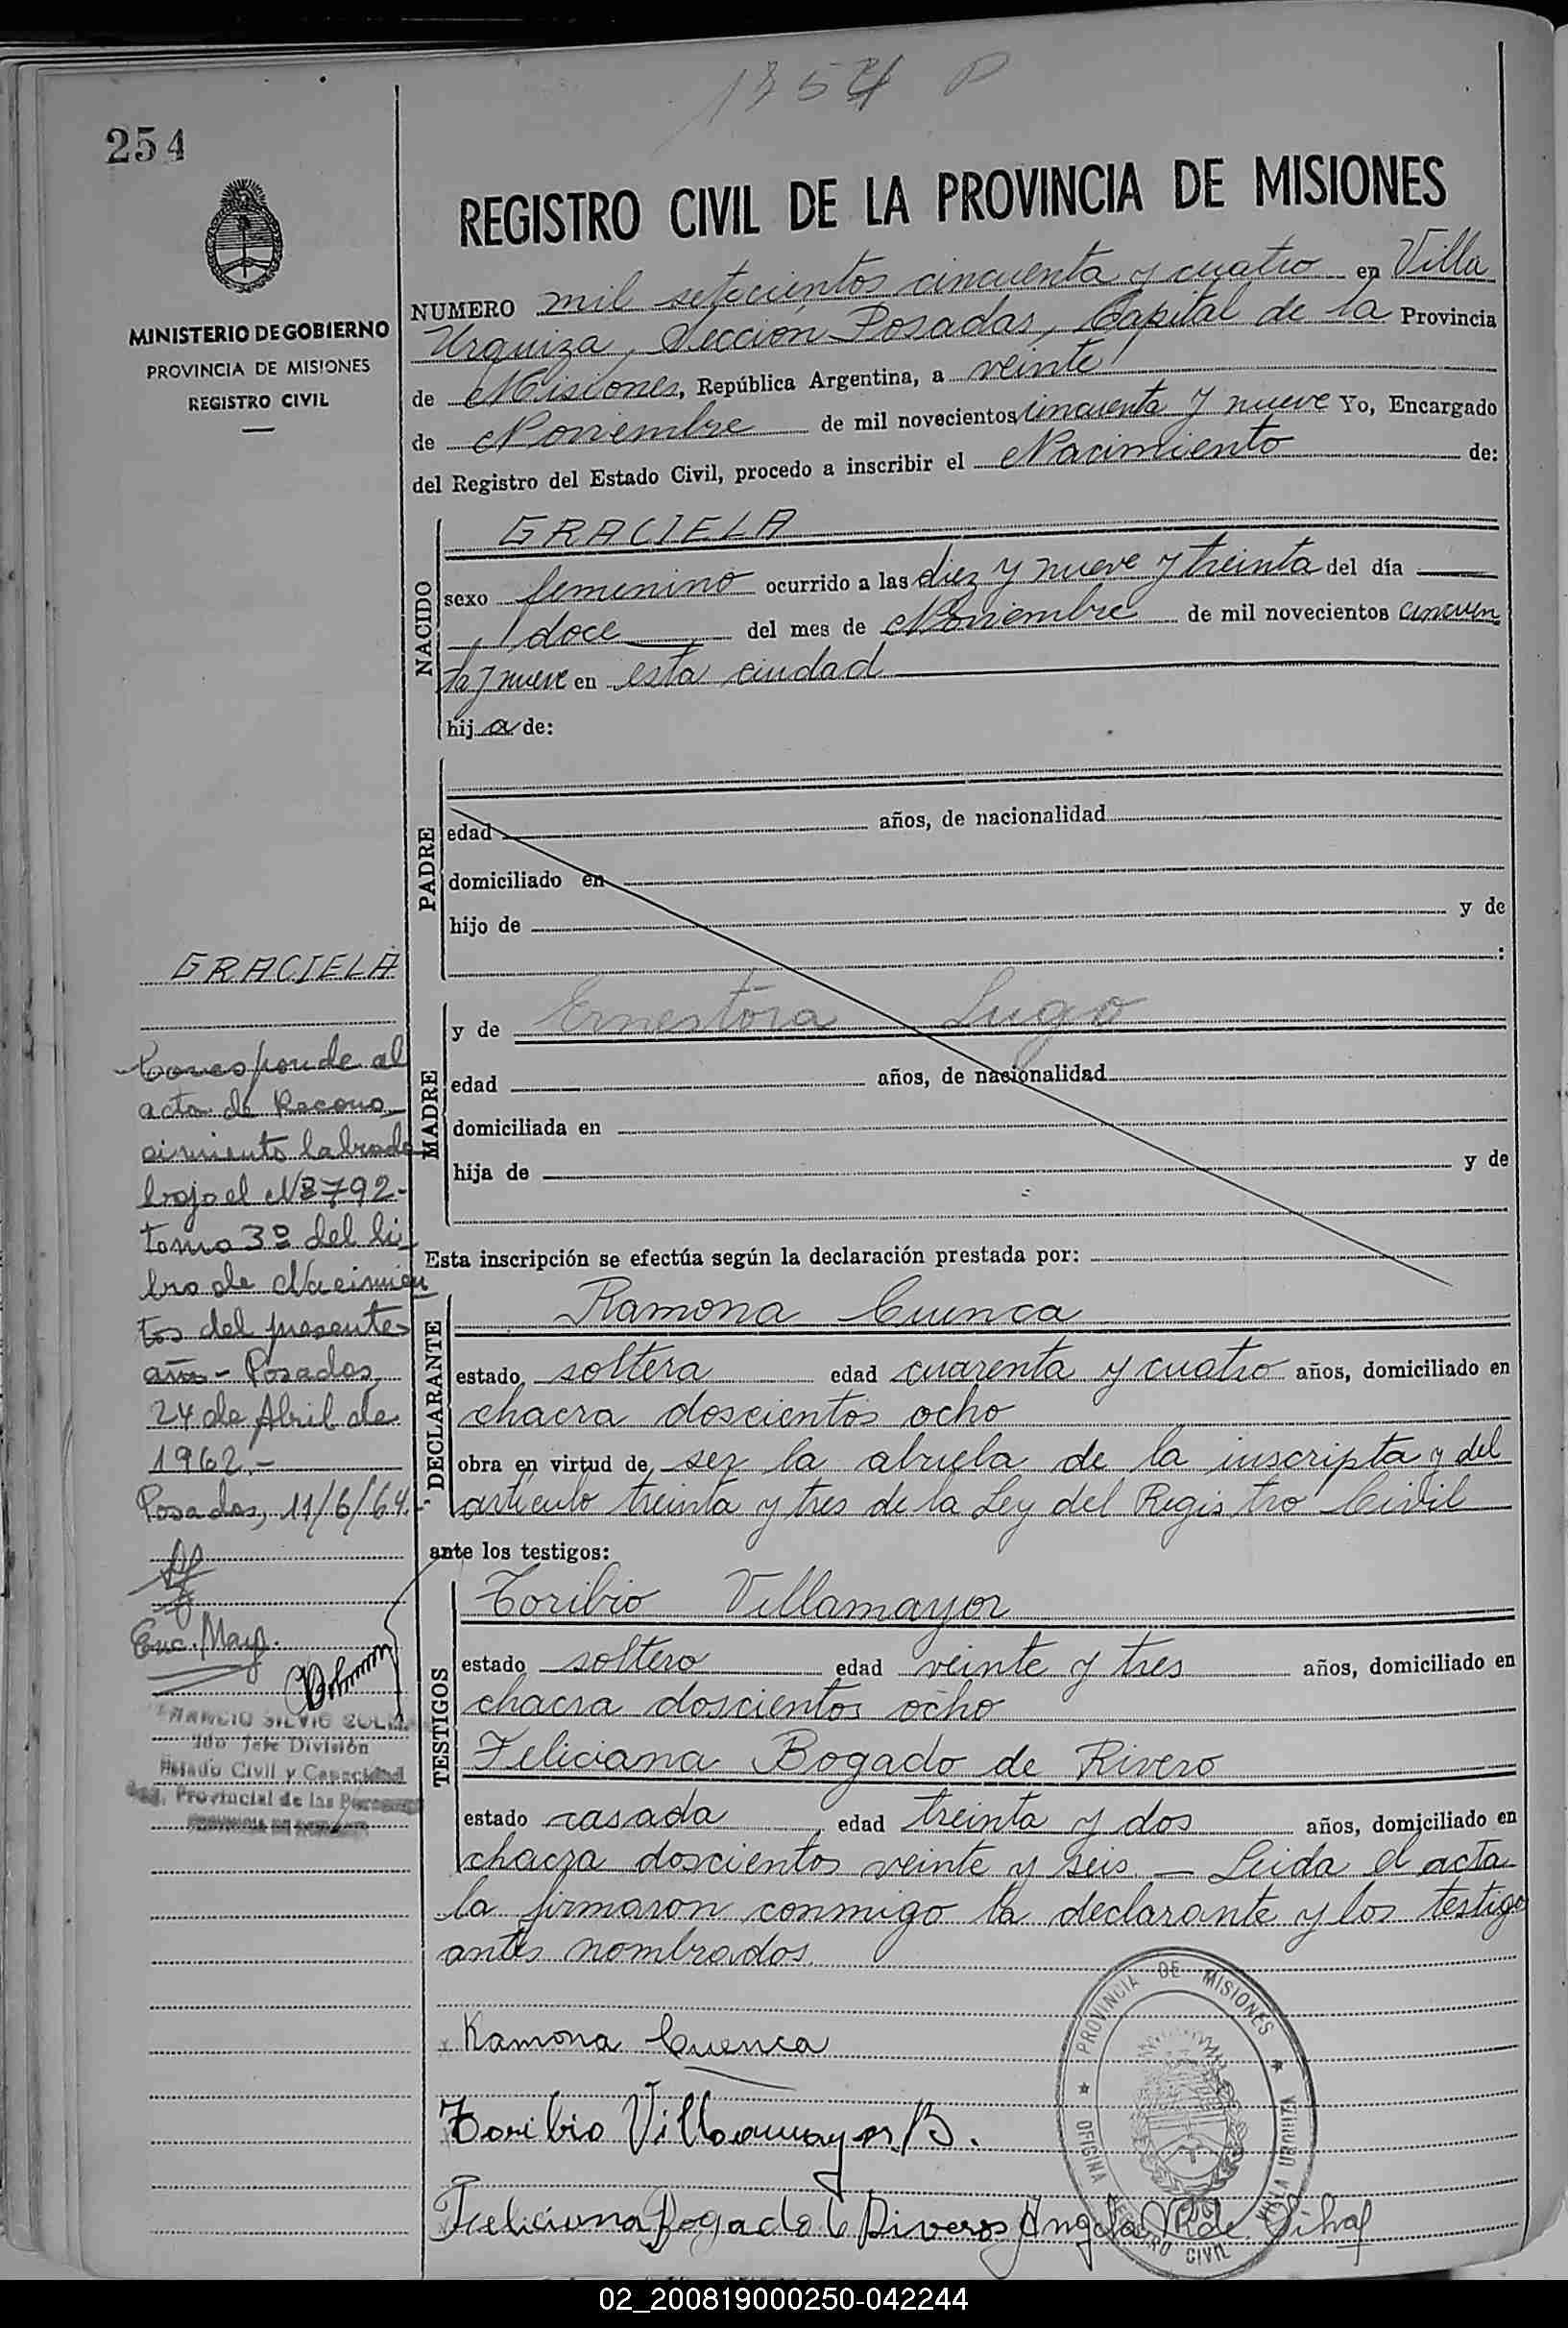 1754 P
254
REGISTRO CIVIL DE LA PROVINCIA DE MISIONES
MINISTERIO DE GOBIERNO
PROVINCIA DE MISIONES
REGISTRO CIVIL
NUMERO mil setecientos cincuenta y cuatro en Villa
Urquiza, Sección Posadas, Capital de la Provincia
de Misiones, República Argentina, a veinte
de Noviembre de mil novecientos cincuenta y nueve Yo, Encargado
del Registro del Estado Civil, procedo a inscribir el Nacimiento de:
NACIDO
GRACIELA
sexo femenino ocurrido a las diez y nueve y treinta del día
doce del mes de Noviembre de mil novecientos cincuen
ta y nueve en esta ciudad
hij a de:
PADRE
edad años, de nacionalidad
domiciliado en
hijo de y de
:
MADRE
y de Ernestora Lugo
edad años, de nacionalidad
domiciliada en
hija de y de
Esta inscripción se efectúa según la declaración prestada por:
DECLARANTE
Ramona Cuenca
estado soltera edad cuarenta y cuatro años, domiciliado en
chacra doscientos ocho
obra en virtud de ser la abuela de la inscripta y del
artículo treinta y tres de la Ley del Registro Civil
ante los testigos:
TESTIGOS
Toribio Villamayor
estado soltero edad veinte y tres años, domiciliado en
chacra doscientos ocho
Feliciana Bogado de Rivero
estado casada edad treinta y dos años, domiciliado en
chacra doscientos veinte y seis. — Leida el acta
la firmaron conmigo la declarante y los testigo
antes nombrados.
Ramona Cuenca
Toribio Villamayor B.
Feliciana Bogado d Riveros Angela R de
PROVINCIA DE MISIONES
OFICINA REGISTRO CIVIL VILLA URQUIZA
GRACIELA
Corresponde al
acta de Recono
cimiento labrada
bajo el Nº 792-
tomo 3º del li
bro de Nacimien
tos del presente
año - Posadas,
24 de Abril de
1962.-
Posadas, 11/6/64.-
Enc. May.
SILVIO
Jefe División
Estado Civil y Capacidad
Provincial de las Personas
PROVINCIA DE MISIONES
02_200819000250-042244